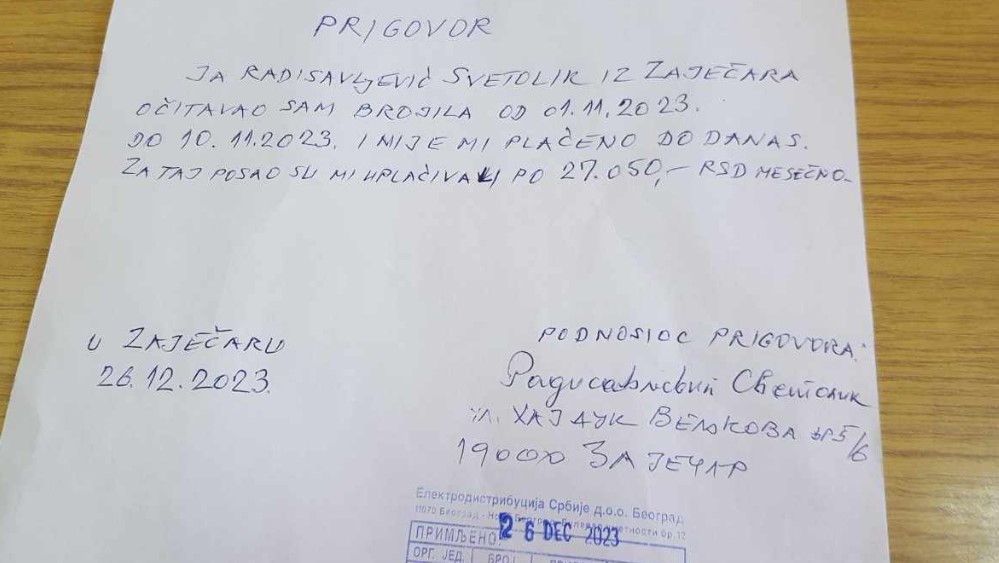 PRIGOVOR
JA RADISAVLJEVIĆ SVETOLIK IZ ZAJEČARA
OČITAVAO SAM BROJILA OD 01.11.2023.
DO 10.11.2023. I NIJE MI PLAČENO DO DANAS.
ZA TAJ POSAO SU MI UPLAČIVALI PO 27.050,- RSD MESEČNO.
U ZAJEČARU
26.12.2023.
PODNOSIOC PRIGOVORA:
Радисављевић Светолик
ул. ХАЈДУК ВЕЉКОВА БР 5/6
19000 ЗАЈЕЧАР
Електродистрибуција Србије д.о.о. Београд
11070 Београд - Нови Београд, Булевар уметности бр.12
ПРИМЉЕНО: 26 DEC 2023
ОРГ. ЈЕД. БРОЈ